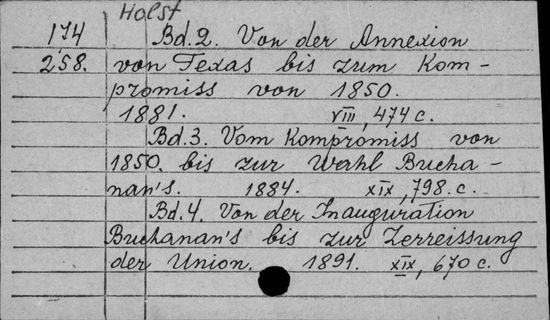 Holst
174 Bd. 2. Von der Annexion
258. von Texas bis zum Kom-
promiss von 1850.
1881. VIII, 474 c.
Bd. 3. Vom Kompromiss von
1850. bis zur Wahl Bucha-
nan's. 1884. XIX, 798. c.
Bd. 4. Von der Inauguration
Buchanan's bis zur Zerreissung
der Union. 1891. XIX, 670 c.